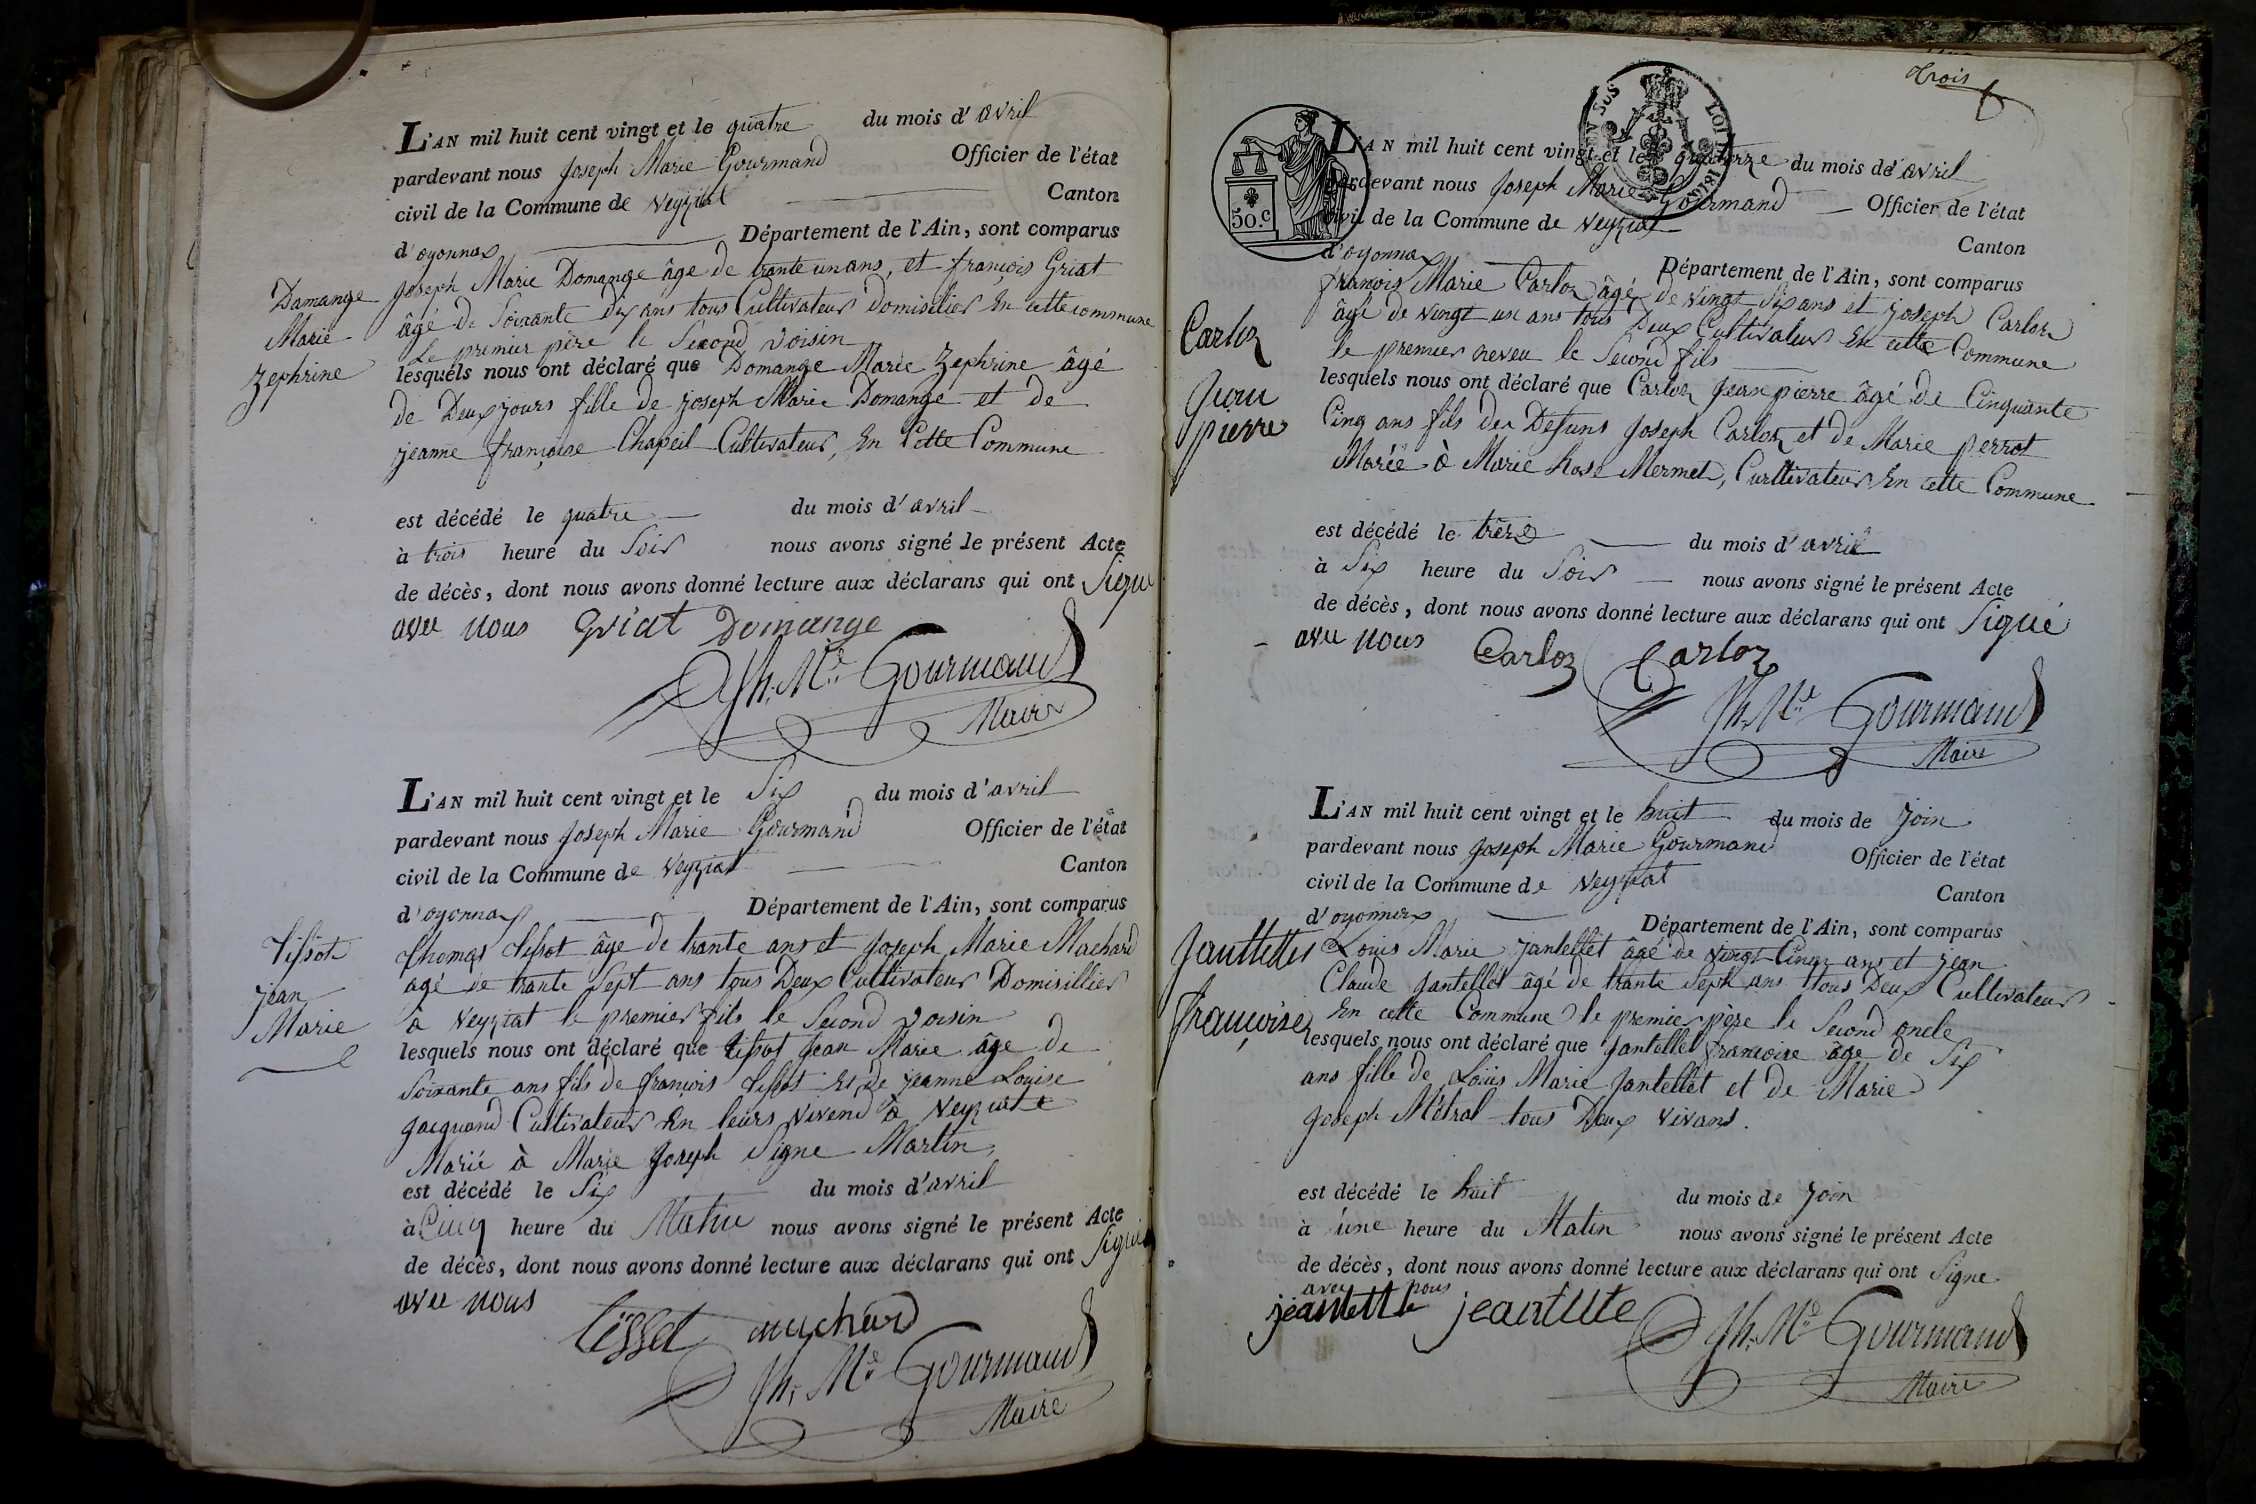 L'AN mil huit cent vingt et le quatre du mois d'avril
pardevant nous Joseph Marie Gourmand Officier de l'état
civil de la Commune de Veyziat Canton
d'oyonnax Département de l'Ain, sont comparus
Joseph Marie Domange âge de trante un ans, et françois Griat
âgé de Soixante dix ans tous Cultivateur Domicilier En cette commune
Le premier père le Second Voisin
lesquels nous ont déclaré que Domange Marie Zephrine âgé
de Deux jours fille de joseph Marie Domange et de
jeanne françoise Chapeil Cultivateur, En Cette Commune
est décédé le quatre du mois d'avril
à trois heure du Soir nous avons signé le présent Acte
de décès, dont nous avons donné lecture aux déclarans qui ont Signé
avec nous Griat Domange
Jh. Mie Gourmand
Maire
Domange
Marie
Zephrine
L'AN mil huit cent vingt et le Six du mois d'avril
pardevant nous Joseph Marie Gourmand Officier de l'état
civil de la Commune de Veyziat Canton
d'oyonnax Département de l'Ain, sont comparus
Thomas tissot âge de trante ans et Joseph Marie Machard
agé de trante Sept ans tous Deux Cultivateur Domisillier
à Veyziat le premier fils le Second Voisin
lesquels nous ont déclaré que tissot Jean Marie âge de
Soixante ans fils de françois tissot Et de jeanne Louise
gacquand Cultivateur En leurs vivend à Veyziat
Marié à Marie Joseph Signe Martin
est décédé le Six du mois d'avril
à Cinq heure du Matin nous avons signé le présent Acte
de décès, dont nous avons donné lecture aux déclarans qui ont Signé
avec nous
tissot machard
Jh. Mie Gourmand
Maire
tissot
jean
Marie
trois
50.c
LOI DE 1816
EN SUS
L'AN mil huit cent vingt et le quatorze du mois de avril
pardevant nous Joseph Marie Gourmand Officier de l'état
civil de la Commune de Veyziat Canton
d'oyonnax Département de l'Ain, sont comparus
françois Marie Carloz âgé de vingt Six ans et joseph Carloz
âgé de vingt un ans tous Deux Cultivateur En cette Commune
le premier neveu le Second fils
lesquels nous ont déclaré que Carloz Jean pierre âgé de Cinquante
Cinq ans fils des Defuns Joseph Carloz et de Marie perrot
Marée à Marie Rose Mermet, Curltivateur En cette Commune
est décédé le trèze du mois d'avril
à Six heure du Soir nous avons signé le présent Acte
de décès, dont nous avons donné lecture aux déclarans qui ont Signé
avec nous Carloz Carloz
Jh. Mie Gourmand
Maire
Carloz
Jean
pierre
L'AN mil huit cent vingt et le huit du mois de join
pardevant nous Joseph Marie Gourmand Officier de l'état
civil de la Commune de Veyziat Canton
d'oyonnax Département de l'Ain, sont comparus
Louis Marie jantellet âgé de vingt Cinq ans et jean
Claude jantellet âgé de trante Sept ans tous Deux Cultivateur
En cette Commune le premier père le Second oncle
lesquels nous ont déclaré que Jantellet françoise âge de Six
ans fille de Louis Marie Jantellet et de Marie
Joseph Métral tous Deux vivans.
est décédé le huit du mois de join
à une heure du Matin nous avons signé le présent Acte
de décès, dont nous avons donné lecture aux déclarans qui ont Signe
avec nous
jeantette
Jh. Mie Gourmand
Maire
françoise